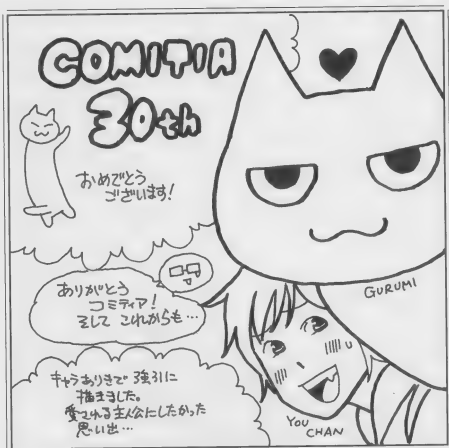 COMITIA
30th
おめでとう
ございます!
ありがとう
コミティア!
そして これからも…
キャラありきで 強引に
描きました。
愛される主人公にしたかった
思い出…
GURUMI
YOU
CHAN